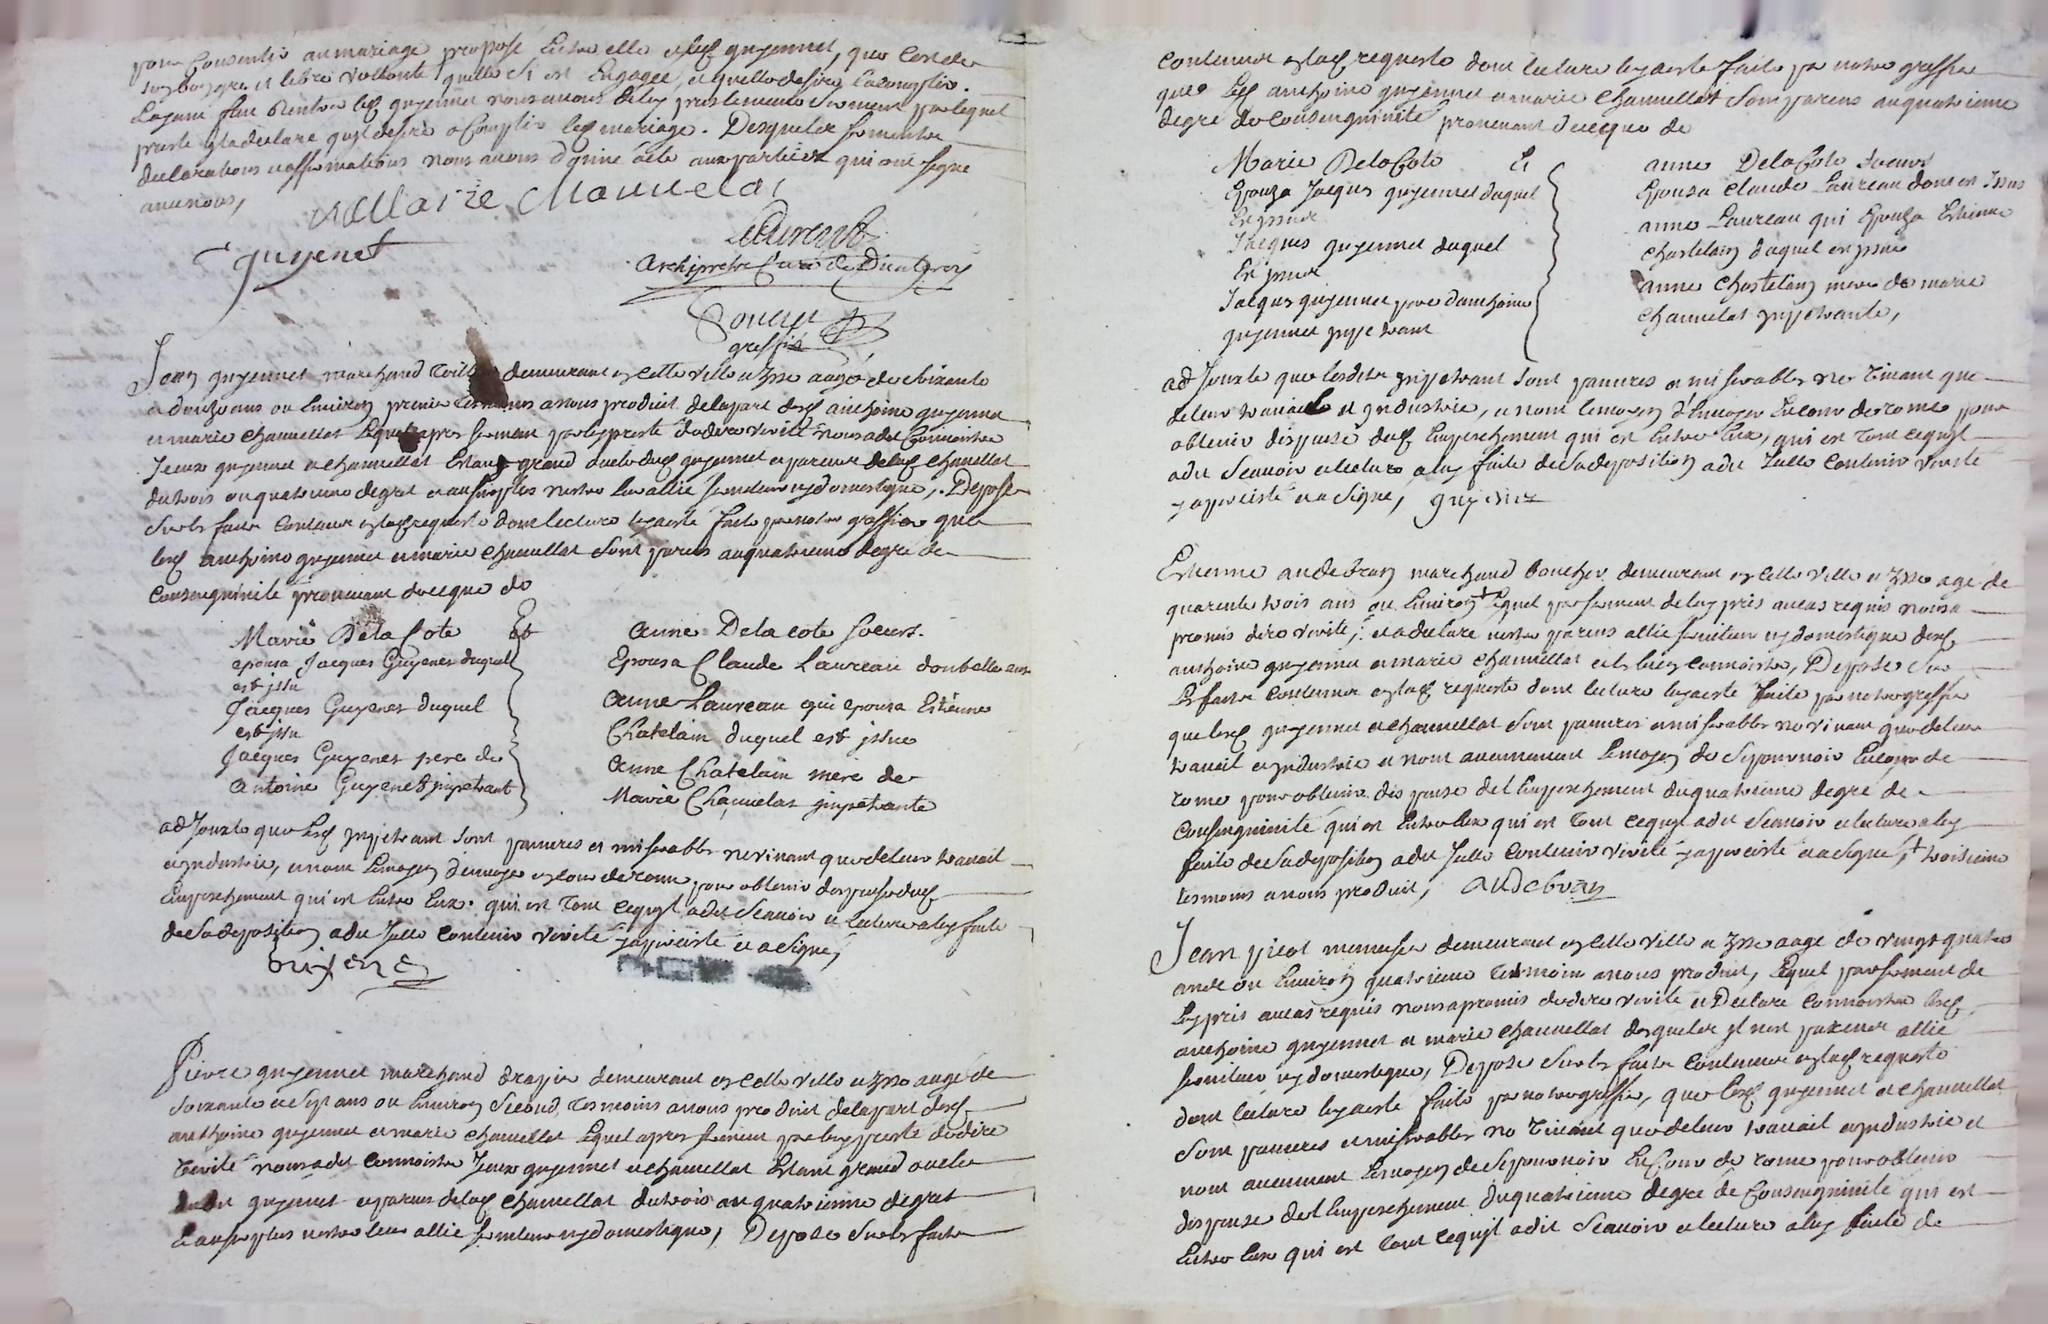 pour Consentir au mariage proposé Entre elle et led guyennet, que C'est de
son bon gre et libre vollonté quelle s'i est Engagée, et quelle desire l'acomplir.
Layant fait Rentrer led guyennet nous avons de luy pris le mesme serment par lequel
presté Il a declaré quil desire acomplir led mariage. Desquelles serments
declarations et affirmations nous avons donné acte aux parties qui ont signé
avec nous,
Marie Chauuelot
guyenet
archiprêtre Curé de
greffier
Jean guyennet marchand demeurant en cette ville aagé de soixante
et douze ans ou Environ premier tesmoins a nous produit de la part desd anthoine guyennet
et marie chauuellot lequel apres serment par luy presté de dire verité nous a dit Connoistre
Iceux guyennet et chauuellot Estant grand oncle dud guyennet et parent de lad chauellot
du trois au quatrieme degret et au surplus nestre leur allié seruiteur ny domestique, Depose
sur les faits Contenus en lad requeste dont lecture luy a esté faite par notre greffier que
lesd anthoine guyennet et marie chauuellot sont parens au quatrieme degré de
Consenguinité prouenant de ce que de
Marie Dela Cote Et
epousa Jacques Guyenet duquel
est jssu
Jacques Guyenet duquel
est jssu
Jacques Guyenet pere de
Antoine Guyenet jmpetrant
Anne Dela cote soeurs.
Epousa Claude Laureau dont elle eut
Anne Laureau qui epousa Estienne
Chatelain duquel est jssue
Anne Chatelain mere de
Marie Chauuelot jmpetrante
adJouxte que lesd Impetrant sont pauures et miserables ne viuant que de leur trauail
et Industrie, et nont le moyen d'enuoyer en cour de rome pour obtenir dispense dud
Empeschement qui est Entre Eux. qui est tout ce quil a dit scauoir et lecture a luy faite
de sa deposition a dit Icelle Contenir verité y a persisté et a signé,
Pierre guyennet marchand drapier demeurant en cette ville aagé de
soixante et sept ans ou Enuiron second tesmoins a nous produit de la part desd
anthoine guyennet et marie chauuellot lequel apres serment par luy presté de dire
verité nous a dit Connoistre Iceux guyennet et chauuellot Estant grand oncle
dudit guyennet et parens de lad chauuellot du trois au quatrieme degret
et au surplus nestre leur allié seruiteur ny domestique, Depose sur les faits
Contenus en lad requeste dont lecture luy a esté faite par notre greffier
que lesd anthoine guyennet et marie chauuellot sont parens au quatrieme
degré de Consenguinité prouenant de ce que de
Marie Dela Cote Et
Epousa Jacques guyennet duquel
Est Jssue
Jacques guyennet duquel
Est jssue
Jacques guyennet pere danthoine
guyennet Impetrant
anne Dela Cote soeurs
Epousa Claude Laureau dont est Issus
anne Laureau qui Epousa Estienne
Chastelain duquel est jssue
anne Chastelain mere de marie
Chauuelot Impetrante,
adJouxte que lesdits Impetrant sont pauures et miserables ne viuant que
de leur trauail et Industrie, et nont le moyen d'Enuoyer En Cour de rome pour
obtenir dispense dud Empeschement qui est Entre Eux, qui est tout ce quil
a dit scauoir et lecture a luy faite de sa deposition a dit Icelle Contenir verité
y a persisté et a signé, guyenet
Estienne audebran marchand boucher demeurant en cette ville aagé de
quarente trois ans ou Enuiron + lequel par serment de luy pris au cas requis nous a
promis dire verité, et a declaré nestre parens allié seruiteur ny domestique desd
anthoine guyennet et marie chauuellot et les bien Connoistre, Depose sur
les faits Contenus en lad requeste dont lecture luy a esté faite par notre greffier
que lesd guyennet et chauuellot sont pauures et miserables ne viuant que de leur
trauail et Industrie et nont aucunement le moyen de se pouruoir En cour de
rome pour obtenir dispense de l'Empeschement du quatrieme degré de
Consenguinité qui est Entre Eux qui est tout ce quil a dit scauoir et lecture a luy
faite de sa deposition a dit Icelle Contenir verité y a persisté et a signé, + troisieme
tesmoins a nous produit, audebran
Jean picot menusier demeurant en cette ville aagé de vingt quatre
ans ou Enuiron quatrieme tesmoin a nous produit, lequel par serment de
luy pris au cas requis nous a promis de dire verité et Declare Connoistre lesd
anthoine guyennet et marie chauuellot desquels il nest parent allié
seruiteur ny domestique, Depose sur les faits Contenus en lad requeste
dont lecture luy a esté faite par notre greffier, que lesd guyennet et chauuellot
sont pauures et miserables ne viuant que de leur trauail et Industrie et
nont aucunement le moyen de se pouruoir En Cour de rome pour obtenir
dispense de l'Empeschement du quatrieme degré de Consenguinité qui est
Entre Eux qui est tout ce quil a dit scauoir et lecture a luy faite de